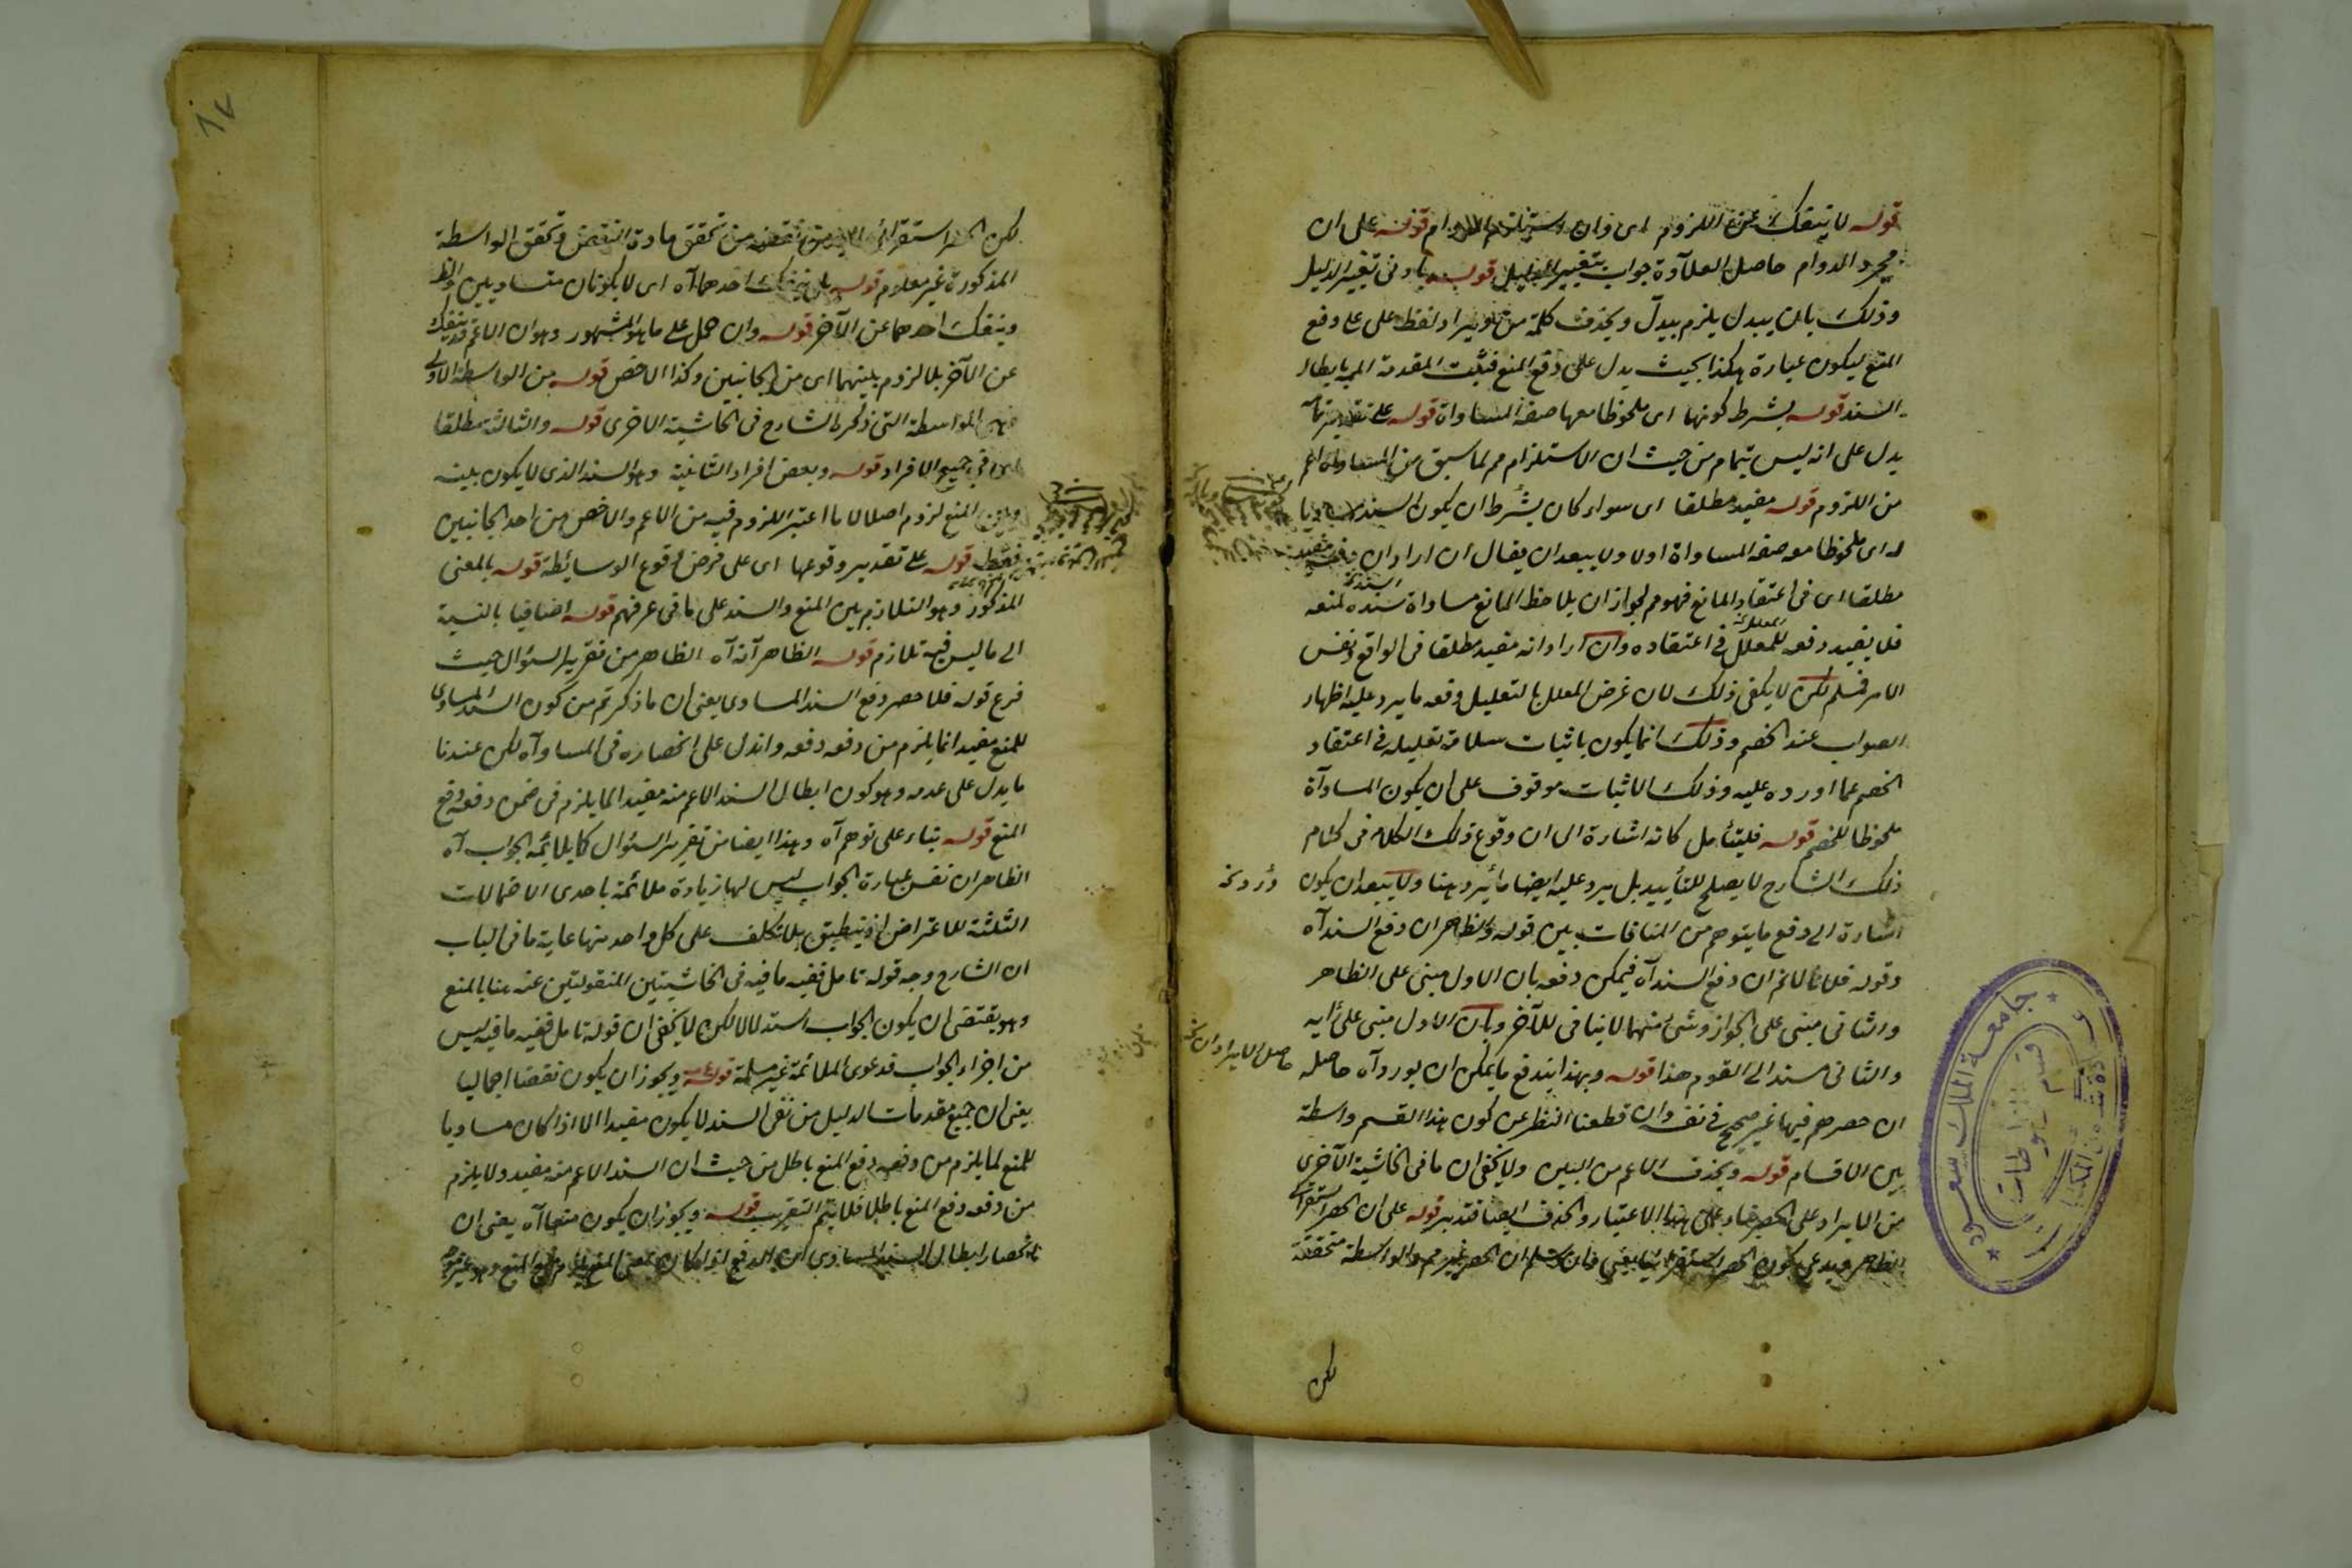 قوله لا ينفك عن اللزوم اى وان استلزم الدوام قوله على ان
مجرد الدوام حاصل العلاوة جواب بتغيير الدليل قوله بادنى تغيير الدليل
وذلك بان يبدل يلزم ببدل ويحذف كلمة من او يراد لفظ على على دفع
المنع ليكون عبارة هكذا بحيث يدل على دفع المنع فيثبت المقدمة الممـ بابطال
السند قوله بشرط كونها اى ملحوظا معها صفة المساواة قوله على تقدير تمآ
يدل على انه ليس بتمام من حيث ان الاستلزام مم لما سبق من المساواة اعم
من اللزوم قوله مفيد مطلقا اى سواء كان بشرط ان يكون السند مساويا
له اى ملحوظا معه صفة المساواة اولا ولا يبعد ان يقال ان اراد ان دفعه مفيد
مطلقا اى فى اعتقاد المانع فهو مم لجواز ان يلاحظ المانع مساواة سنده لمنعه
فلا يفيد دفعه للمعلل فى اعتقاده وان اراد انه مفيد مطلقا فى الواقع ونفس
الامر فمسلم لكن لا يكفى ذلك لان غرض المعلل بالتعليل دفعه ما يرد عليه اظهار
الصواب عند الخصم وذلك انما يكون باثبات سلامة تعليله فى اعتقاد
الخصم عما اورده عليه وذلك الاثبات موقوف على ان يكون المساوآة
ملحوظا للخصم قوله فليتأمل كانه اشارة الى ان وقوع ذلك الكلام فى كلام
ذلك الشارح لا يصلح للتأييد بل يرد عليه ايضا ما يرد هنا ولا يبعد ان يكون
اشارة الى دفع ما يتوهم من المنافات بين قوله والظاهر ان دفع السند آه
وقوله فلانا لانم ان دفع السند آه فيمكن دفعه بان الاول مبنى على الظاهر
والثانى مبنى على الجواز وشئ منهما لا ينافى للآخر وبان الاول مبنى على رأيه
والثانى مسند الى القوم هذا قوله وبهذا يندفع ما يمكن ان يورد آه حاصله
ان حصرهم فيها غير صحيح فى نفسه وان قطعنا النظر عن كون هذا القسم واسطة
بين الاقسام قوله ويحذف الاعم من البين ولا يخفى ان ما فى الحاشية الآخرى
من الايراد على الحصر بناء على هذا الاعتبار والحذف ايضا فتدبر قوله على ان الحصر استقرائى
الظاهر ويدعى كون الحصر استقرائيا يعنى فان سلم ان الحصر غير مم والواسطة متحققة
لكن
لكن الحصر استقرائى من تحقق مادة النقض وتحقق الواسطة
المذكورة غير معلوم قوله بل ينفك احدهما آه اى لا يكونان متساويين والظ
وينفك احدهما عن الآخر قوله وان حمل على ما هو المشهور وهو ان الاعم قد ينفك
عن الآخر بلا لزوم بينهما اى من الجانبين وكذا الاخص قوله من الواسطة الاولى
الواسطة التى ذكرها الشارح فى الحاشية الاخرى قوله والثالثة مطلقا
اى فى جميع الافراد قوله وبعض افراد الثانية وهو السند الذى لا يكون بينه
وبين المنع لزوم اصلا لا ما اعتبر اللزوم فيه من الاعم والاخص من احد الجانبين
فقط قوله على تقدير وقوعها اى على فرض وقوع الوسائط قوله بالمعنى
المذكور وهو التلازم بين المنع والسند على ما فى عرفهم قوله اضافيا بالنسبة
الى ما ليس فيه تلازم قوله الظاهر آنه آه الظاهر من تقرير السؤال حيث
فرع قوله فلا حصر دفع السند المساوى يعنى ان ما ذكرتم من كون السند المساوى
للمنع مفيد انما يلزم من دفعه دفعه وان دل على انحصاره فى المساوآه لكن عندنا
ما يدل على عدمه وهو كون ابطال السند الاعم منه مفيد الما يلزم فى ضمن دفعه دفع
المنع قوله بناء على توهم آه وهذا ايضا من تقرير السؤال كما يلائمه الجواب آه
الظاهر ان نفس عبارة الجواب ليس لها زيادة ملائمة باحدى الاحتمالات
الثلثة للاعتراض اذ ينطبق بلا تكلف على كل واحد منها غاية ما فى الباب
ان الشارح وجه قوله تامل ففيه ما فيه فى الحاشيتين المنقولتين عنه هنا بالمنع
وهو يقتضى ان يكون الجواب استدلالا لكن لا يخفى ان قوله تامل ففيه ما فيه ليس
من اجزاء الجواب فدعوى الملائمة غير مسلمة قوله ويجوز ان يكون نقضا اجماليا
يعنى ان جميع مقدمات الدليل من نفى السند لا يكون مفيدا الا اذا كان مساويا
للمنع لما يلزم من دفعه دفع المنع باطل من حيث ان السند الاعم منه مفيد ولا يلزم
من دفعه دفع المنع باطلا فلا يتم التقريب قوله ويجوز ان يكون منعا آه يعنى ان
انحصار ابطال السند المساوى